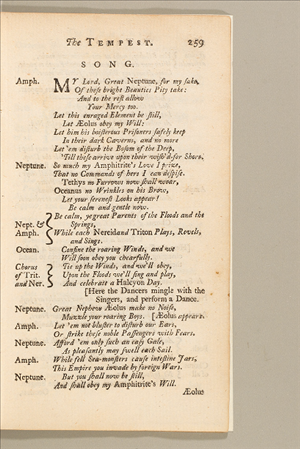 The TEMPEST. 259
SONG.
Amph. MY Lord, Great Neptune, for my sake,
Of these bright Beauties Pity take:
And to the rest allow
Your Mercy too.
Let this enraged Element be still,
Let Æolus obey my Will:
Let him his boisterous Prisoners safely keep
In their dark Caverns, and no more
Let 'em disturb the Bosom of the Deep,
'Till these arrive upon their wish'd-for Shore.
Neptune. So much my Amphitrite's Love I prize,
That no Commands of hers I can despise.
Tethys no Furrows now shall wear,
Oceanus no Wrinkles on his Brows,
Let your serenest Looks appear!
Be calm and gentle now.
Nept. & Amph. Be calm, ye great Parents of the Floods and the
Springs,
While each Nereid and Triton Plays, Revels,
and Sings.
Ocean. Confine the roaring Winds, and we
Will soon obey you chearfully.
Chorus of Trit. and Ner. Tie up the Winds, and we'll obey,
Upon the Floods we'll sing and play,
And celebrate a Halcyon Day.
[Here the Dancers mingle with the
Singers, and perform a Dance.
Neptune. Great Nephew Æolus make no Noise,
Muzzle your roaring Boys. [Æolus appears.
Amph. Let 'em not bluster to disturb our Ears,
Or strike these noble Passengers with Fears.
Neptune. Afford 'em only such an easy Gale,
As pleasantly may swell each Sail.
Amph. While fell Sea-monsters cause intestine Jars,
This Empire you invade by foreign Wars.
Neptune. But you shall now be still,
And shall obey my Amphitrite's Will.
Æolus